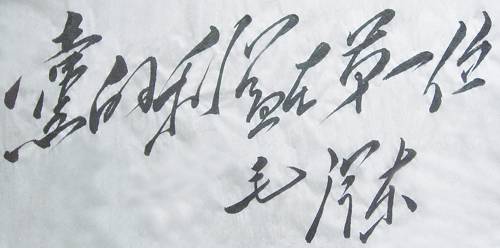 党的利益在第一位
毛泽东